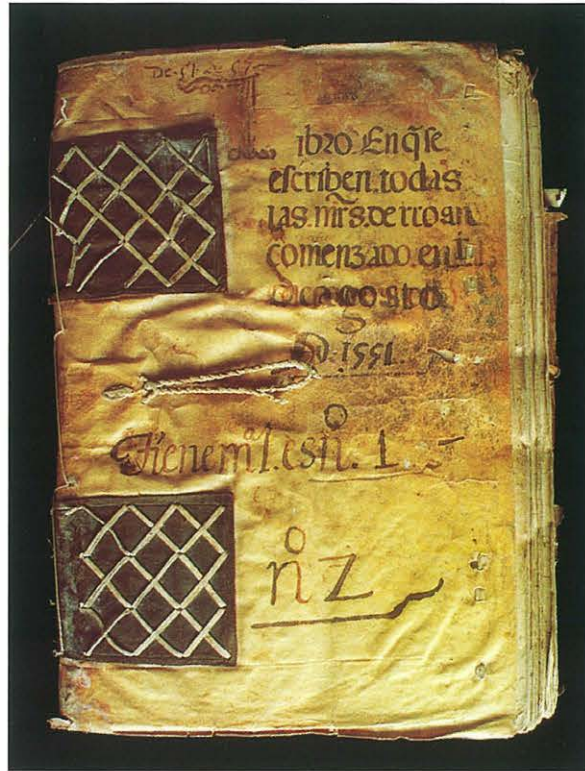 De .51. a 57
ibro En q̃ se
escriben. todas
las. mr̃s. de rroan
comenzado. en
de agosto
D. 1551.
tiene mªl. esñ. 1
nº 2